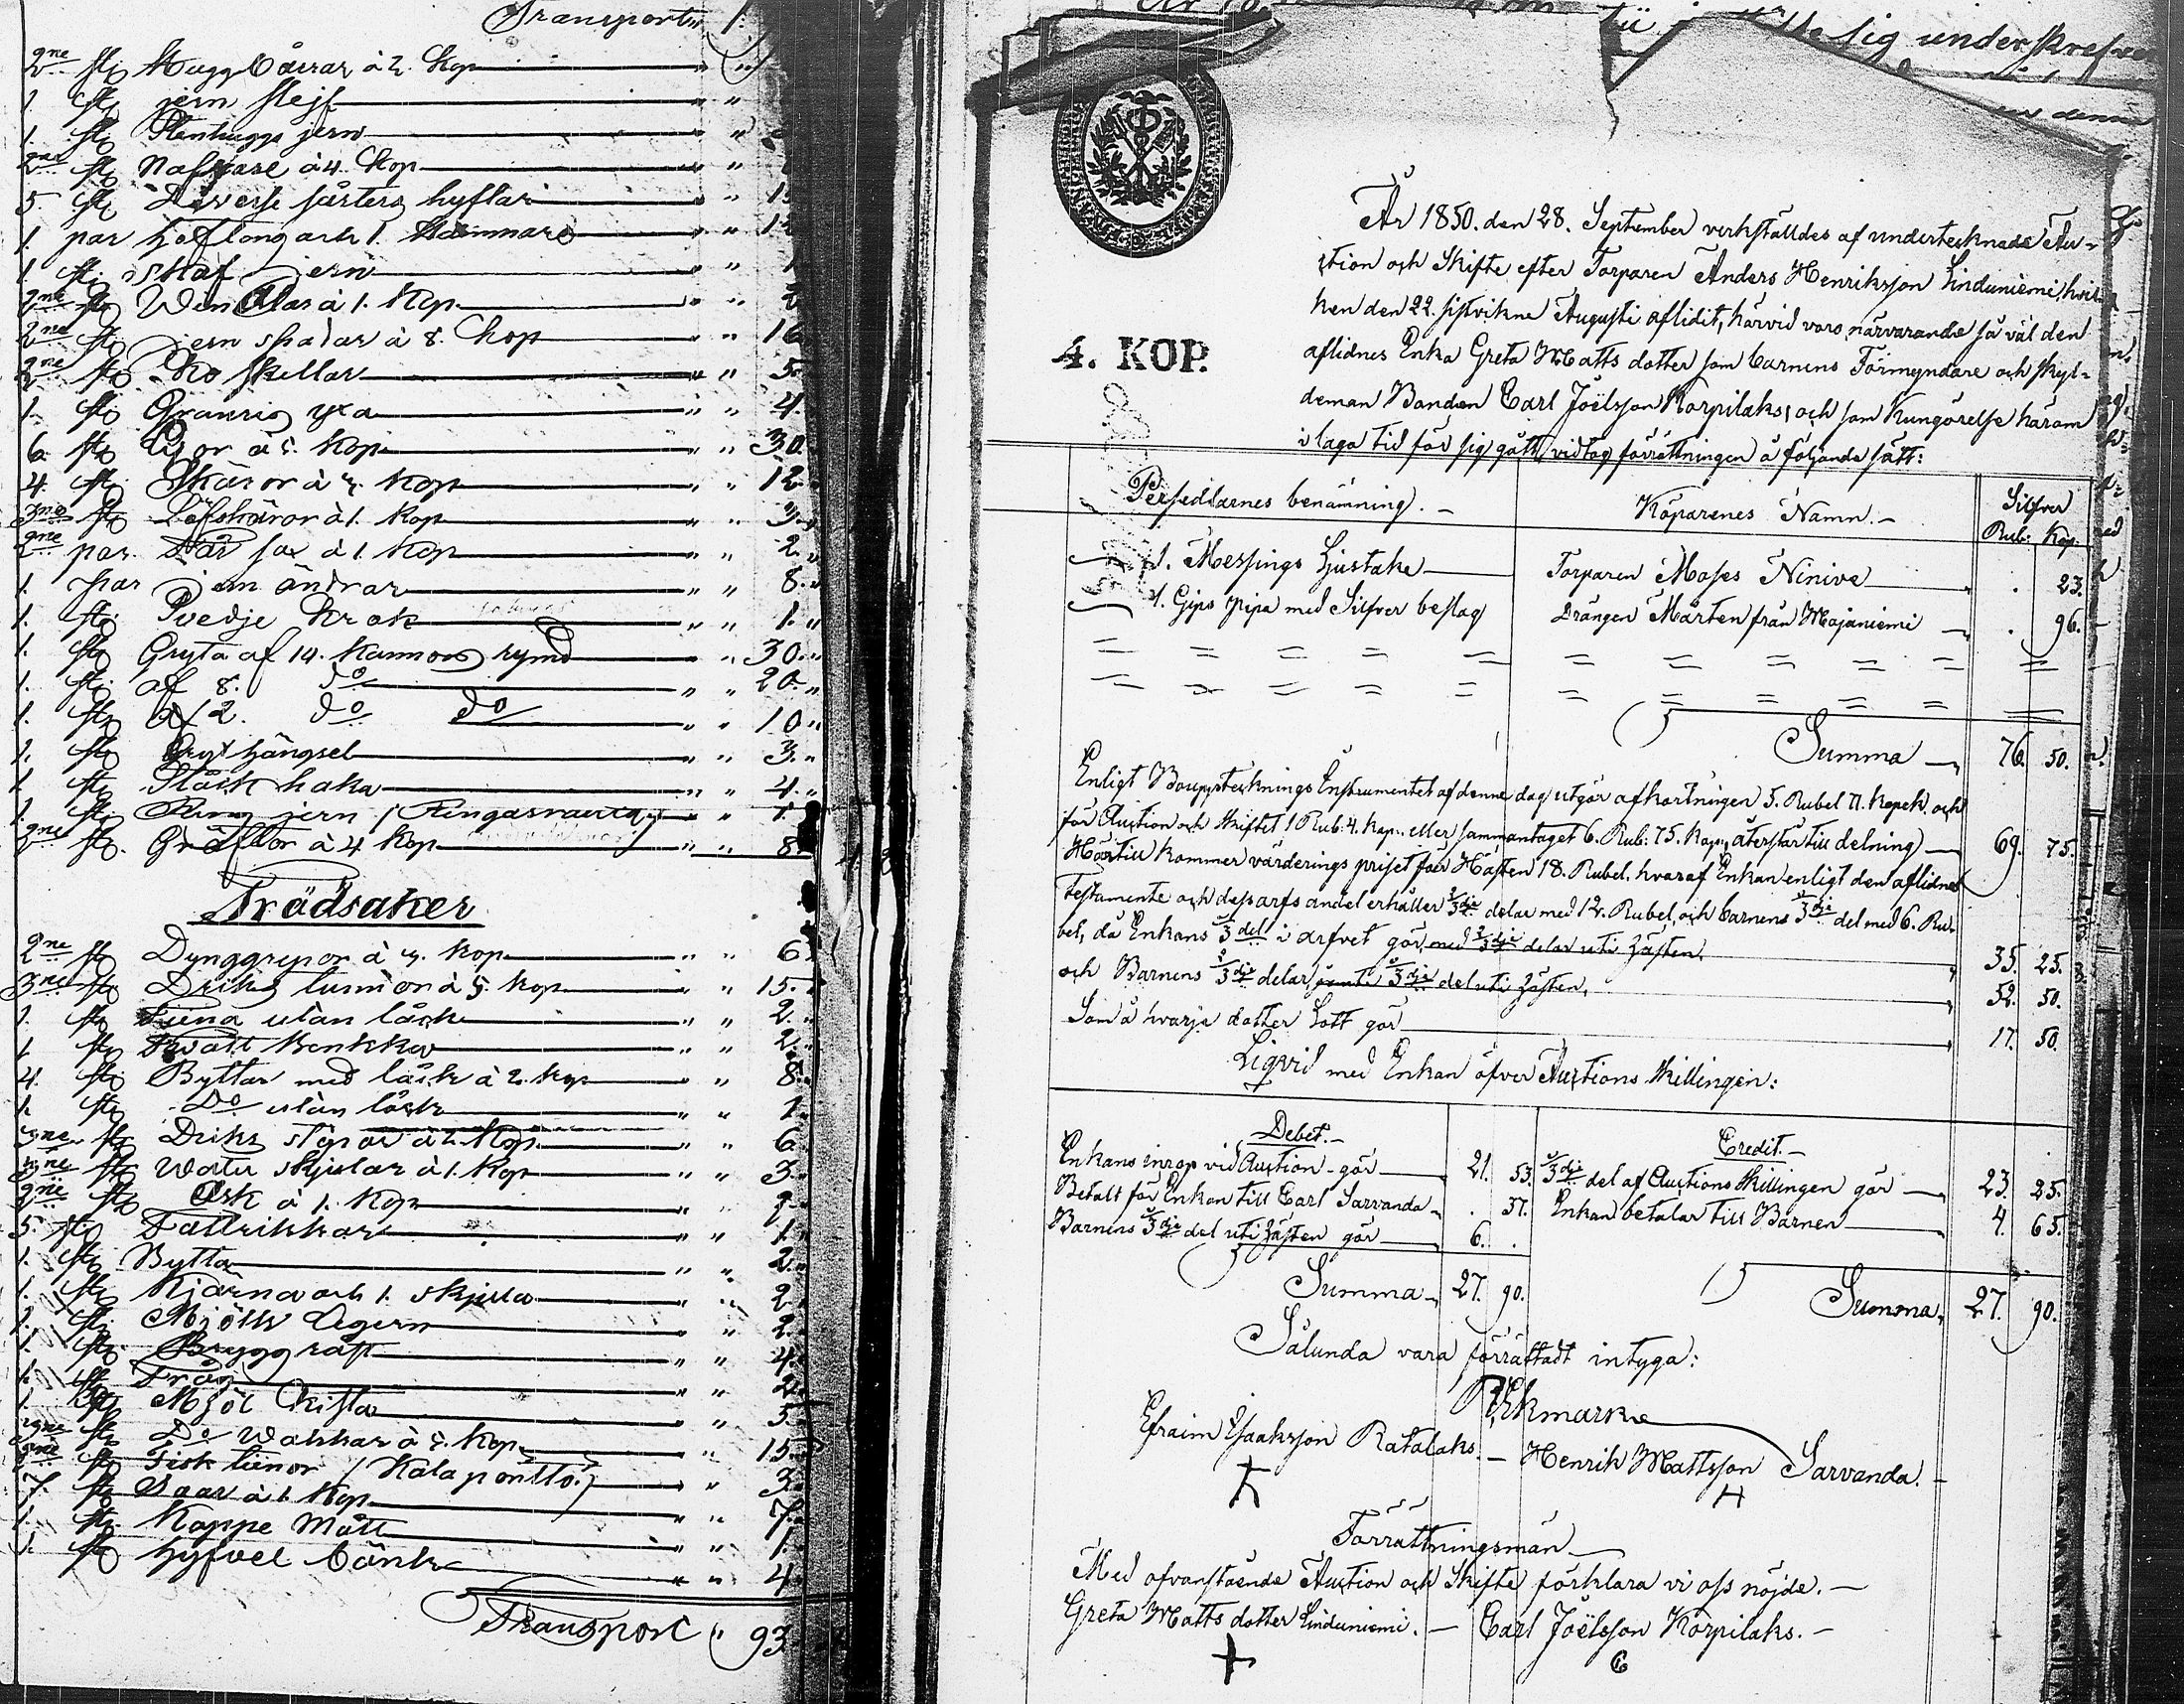 Transport
2ne st Hugg bårrar à 2. Kop
1. st jern slejf
1. st Stenhuggs jern
2ne st Nafvare à 4. Kop
5. st Diverse sårters hyflar 1
1. par hof tong och 1. Hammare 12
1. st skaf jern
2ne st à 1. Kop 2
2ne st jern spadar à 8. Kop 16
2ne st Ko skellar 5.
1. st yxa 4.
6. st Lior à 5. Kop 30.
4. st Skäror à 3. Kop 12.
3ne st Löfskäror à 1. Kop 3.
2ne par. Får sax à 1. Kop 2.
1. par jern ändrar 8.
1. st Svedje Krok 1.
1. st Gryta af 14. Kannors rymd 30.
1. st af 8. do 20.
1. st af 2. do do 10.
1. st Gryt hängsel 3.
1. st Ståck haka 4.
1. st jern (Ringasrauta) 1.
2ne st Gräftor à 4 Kop 8.
Trädsaker
2ne st Dynggrepor à 3. Kop 6.
3ne st Driks tunnor à 5. Kop 15.
1. st Tina utan låck 2.
1. st Tvätt Benkka 2.
4. st Byttar med låck à 2. Kop 8.
1. st Do utan låck 1.
3ne st Driks stopor à 2. Kop 6.
3ne st Watu skjular à 1. Kop 3.
2ne st Ask à 1. Kop 2.
5. st Fattrikkar 1.
1. st Bytta 2.
1. st Kjärna och 1. skjula 2.
1. st Mjölk Legern 2.
1. st Brygg råst 4.
1. st Tråg 2.
1. st Mjöl Kista 5.
3ne st Do Wakkar à 5. Kop 15.
2ne st Fisk tinor (Kala pönttö.) 3.
7. st Saar à 1. Kop 7.
1. st Kappe Mått 1.
1. st hyfvel bänk 4.
Transport 93
sig underskrefven
denna
4. KOP.
År 1850. den 28. September verkställdes af undertecknade Au-
ction och Skifte efter Torparen Anders Henriksson Linduniemi, hvil-
ken den 22. sistvikne Augusti aflidit, härvid voro närvarande så väl den
aflidnes Enka Greta Matts dotter som barnens Förmyndare och skyl-
deman Bonden Carl Joëlsson Korpilaks, och som Kungörelse härom
i laga tid för sig gått, vidtog förrättningen å följande sätt:
Persedlarnes benämning. Köparenes Namn. Silfver
Rub: Kop.
1. Messings Ljustake Torparen Moses Ninive . 23.
1. Gips pipa med Silfver beslag Drängen Mårten från Majaniemi . 96.
Summa 76. 50.
Enligt Bouppteknings Instrumentet af denne dag utgör afkortningen 5. Rubel 71. Kopek. och
för Auction och Skiftet 1 Rub: 4. Kop., eller sammantaget 6. Rub: 75. Kop., återstår till delning 69. 75.
Härtill kommer värderings priset för Hästen 18. Rubel, hvaraf Enkan enligt den aflidnes
Testamente och dess arfs andel erhåller 2/3dje delar med 12. Rubel, och barnens 1/3dje del med 6. Ru-
bel, då Enkans 1/3 del i arfvet gör med 2/3dje delar uti hästen. 35. 25.
och Barnens 2/3dje delar jemte 1/3dje del uti hästen, 52. 50.
Som å hvarje dotter Lott gör 17. 50.
Liqvid med Enkan öfver Auctions Skillingen:
Debet. Credit.
Enkans inrop vid Auction gör 21. 53. 1/3dje del af Auctions Skillingen gör 23. 25.
Betalt för Enkan till Carl Sarvanda . 37. Enkan betalar till Barnen 4. 65.
Barnens 1/3dje del uti hästen gör 6. .
Summa 27. 90. Summa 27. 90.
Sålunda vara förrättadt intyga:
Ekmark
Efraim Isaaksson Ratalaks. Henrik Mattsson Sarvanda.
Förrättningsmän
Med ofvanstående Auction och Skifte förklara vi oss nöjde.
Greta Matts dotter Linduniemi. Carl Joëlsson Korpilaks.